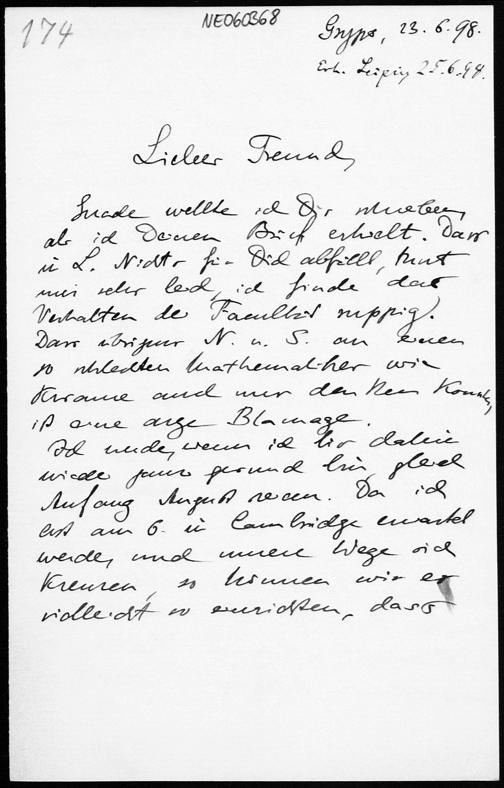 174
NE060368
Gryps, 23.6.98.
Erh. Leipzig 25.6.98.
Lieber Freund,
Gerade wollte ich Dir schreiben,
als ich Deinen Brief erhielt. Dass
in L. Nichts für Dich abfällt, thut
mir sehr leid, ich finde das
Verhalten der Facultät ruppig.
Dass übrigens N. u. S. an einen
so schlechten Mathematiker wie
Krause auch nur denken konnten,
ist eine arge Blamage.
Ich werde, wenn ich bis dahin
wieder ganz gesund bin, gleich
Anfang August reisen. Da ich
erst am 6. in Cambridge erwartet
werde, und unsere Wege sich
kreuzen, so können wir es
vielleicht so einrichten, dass